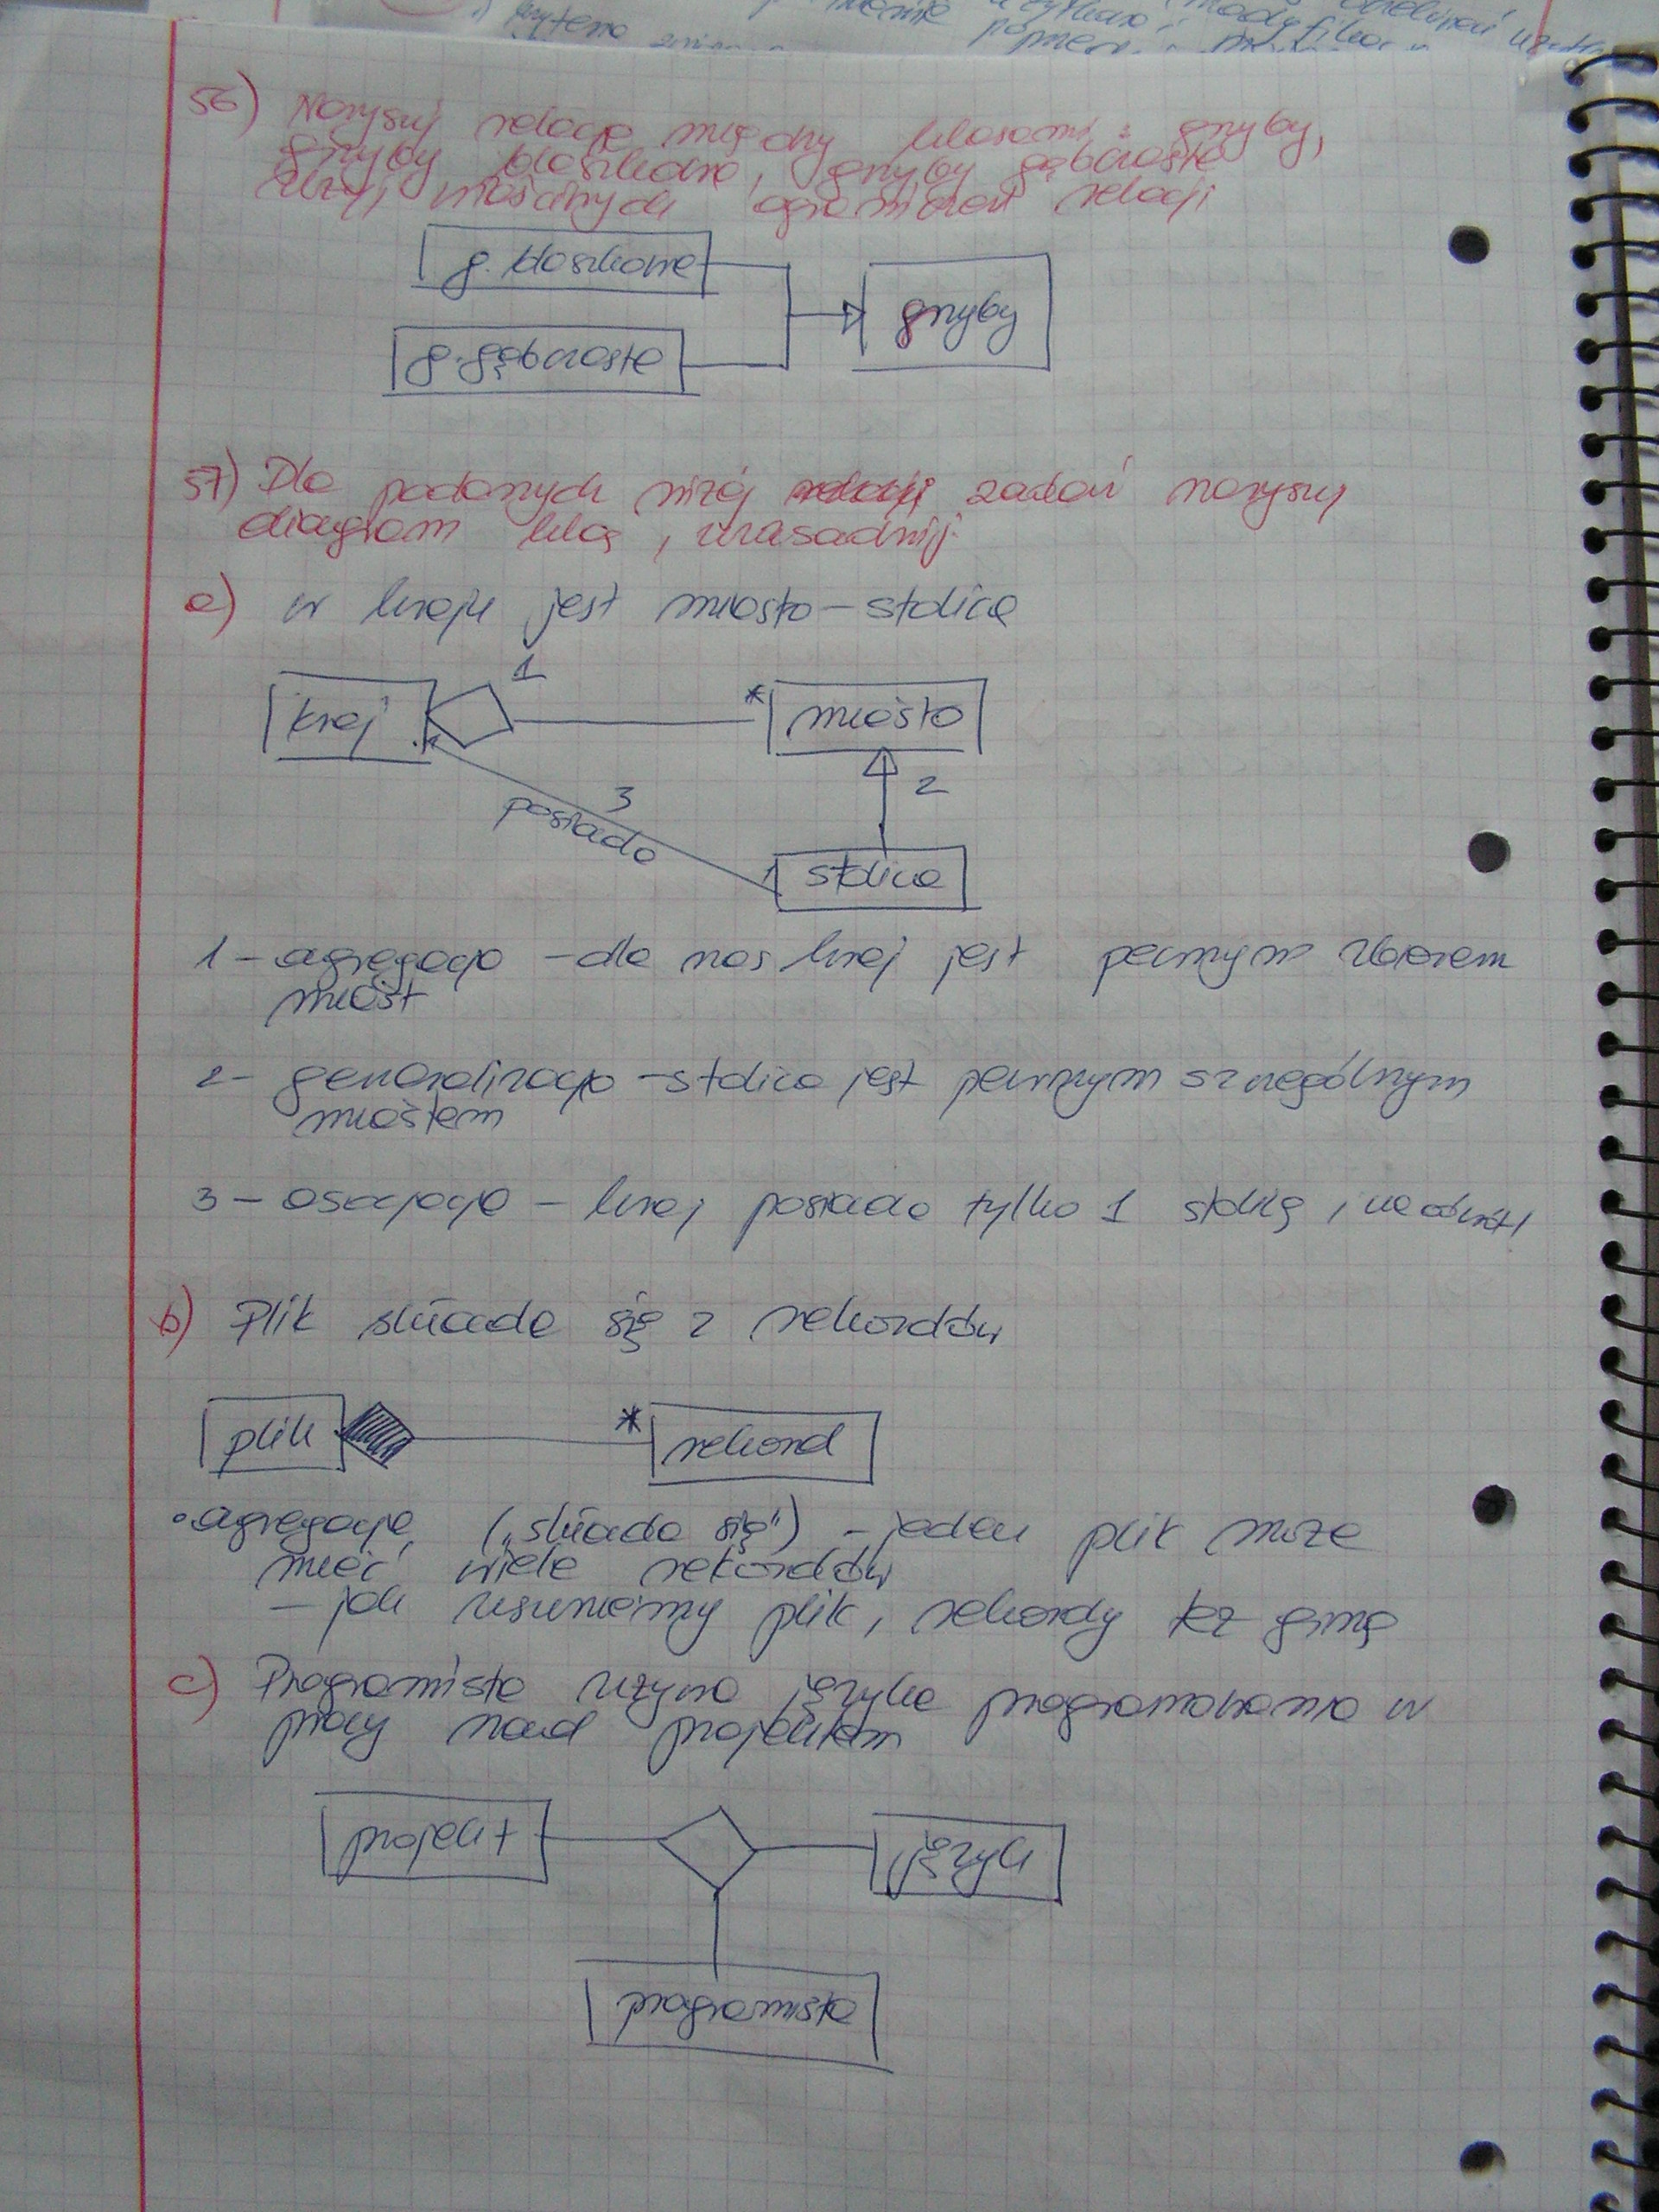 56) Narysuj relację między klasami: grzyby,
grzyby blaszkowe, grzyby gąbczaste
użyj właściwych ograniczeń relacji
g. blaszkowe
grzyby
g. gąbczaste
57) Dla podanych niżej zadań narysuj
diagram klas, uzasadnij.
a) w kraju jest miasto - stolica
1
kraj
*
miasto
2
3
posiada
1
stolica
1 - agregacja - dla nas kraj jest pewnym zbiorem
miast
2 - generalizacja - stolica jest pewnym szczególnym
miastem
3 - asocjacja - kraj posiada tylko 1 stolicę,
b) Plik składa się z rekordów
plik
*
rekord
• agregacja, („składa się”) - jeden plik może
mieć wiele rekordów
- jak usuniemy plik, rekordy też giną
c) Programista używa języka programowania w
pracy nad projektem
projekt
język
programista